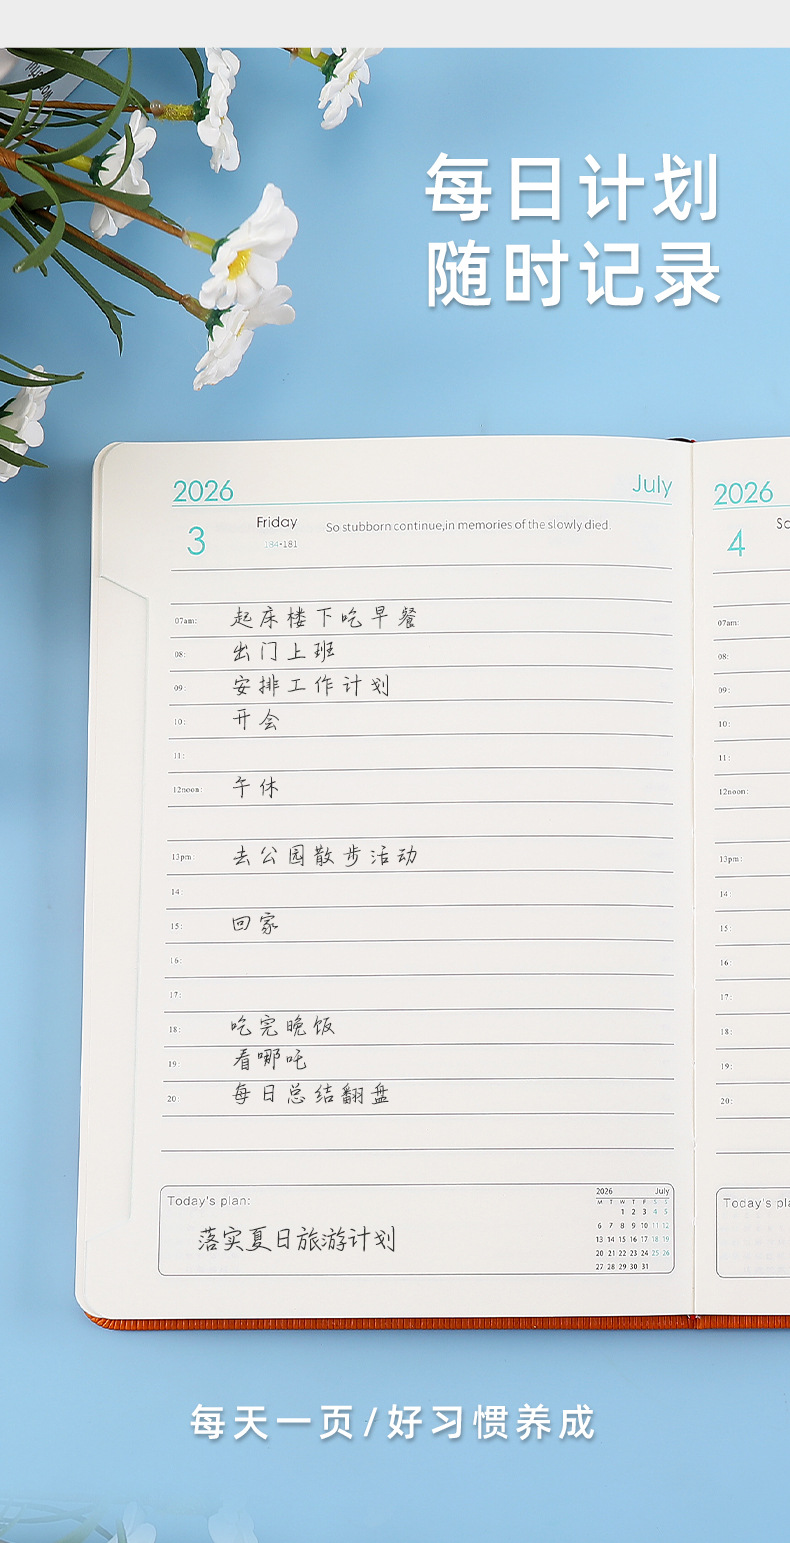 每日计划
随时记录
2026 July
3 Friday So stubborn continue,in memories of the slowly died.
184•181
07am: 起床楼下吃早餐
08: 出门上班
09: 安排工作计划
10: 开会
11:
12noon: 午休
13pm: 去公园散步活动
14:
15: 回家
16:
17:
18: 吃完晚饭
19: 看哪吒
20: 每日总结翻盘
Today's plan:
落实夏日旅游计划
2026 July
M T W T F S S
1 2 3 4 5
6 7 8 9 10 11 12
13 14 15 16 17 18 19
20 21 22 23 24 25 26
27 28 29 30 31
2026
4
07am:
08:
09:
10:
11:
12noon:
13pm:
14:
15:
16:
17:
18:
19:
20:
Today's
每天一页/好习惯养成